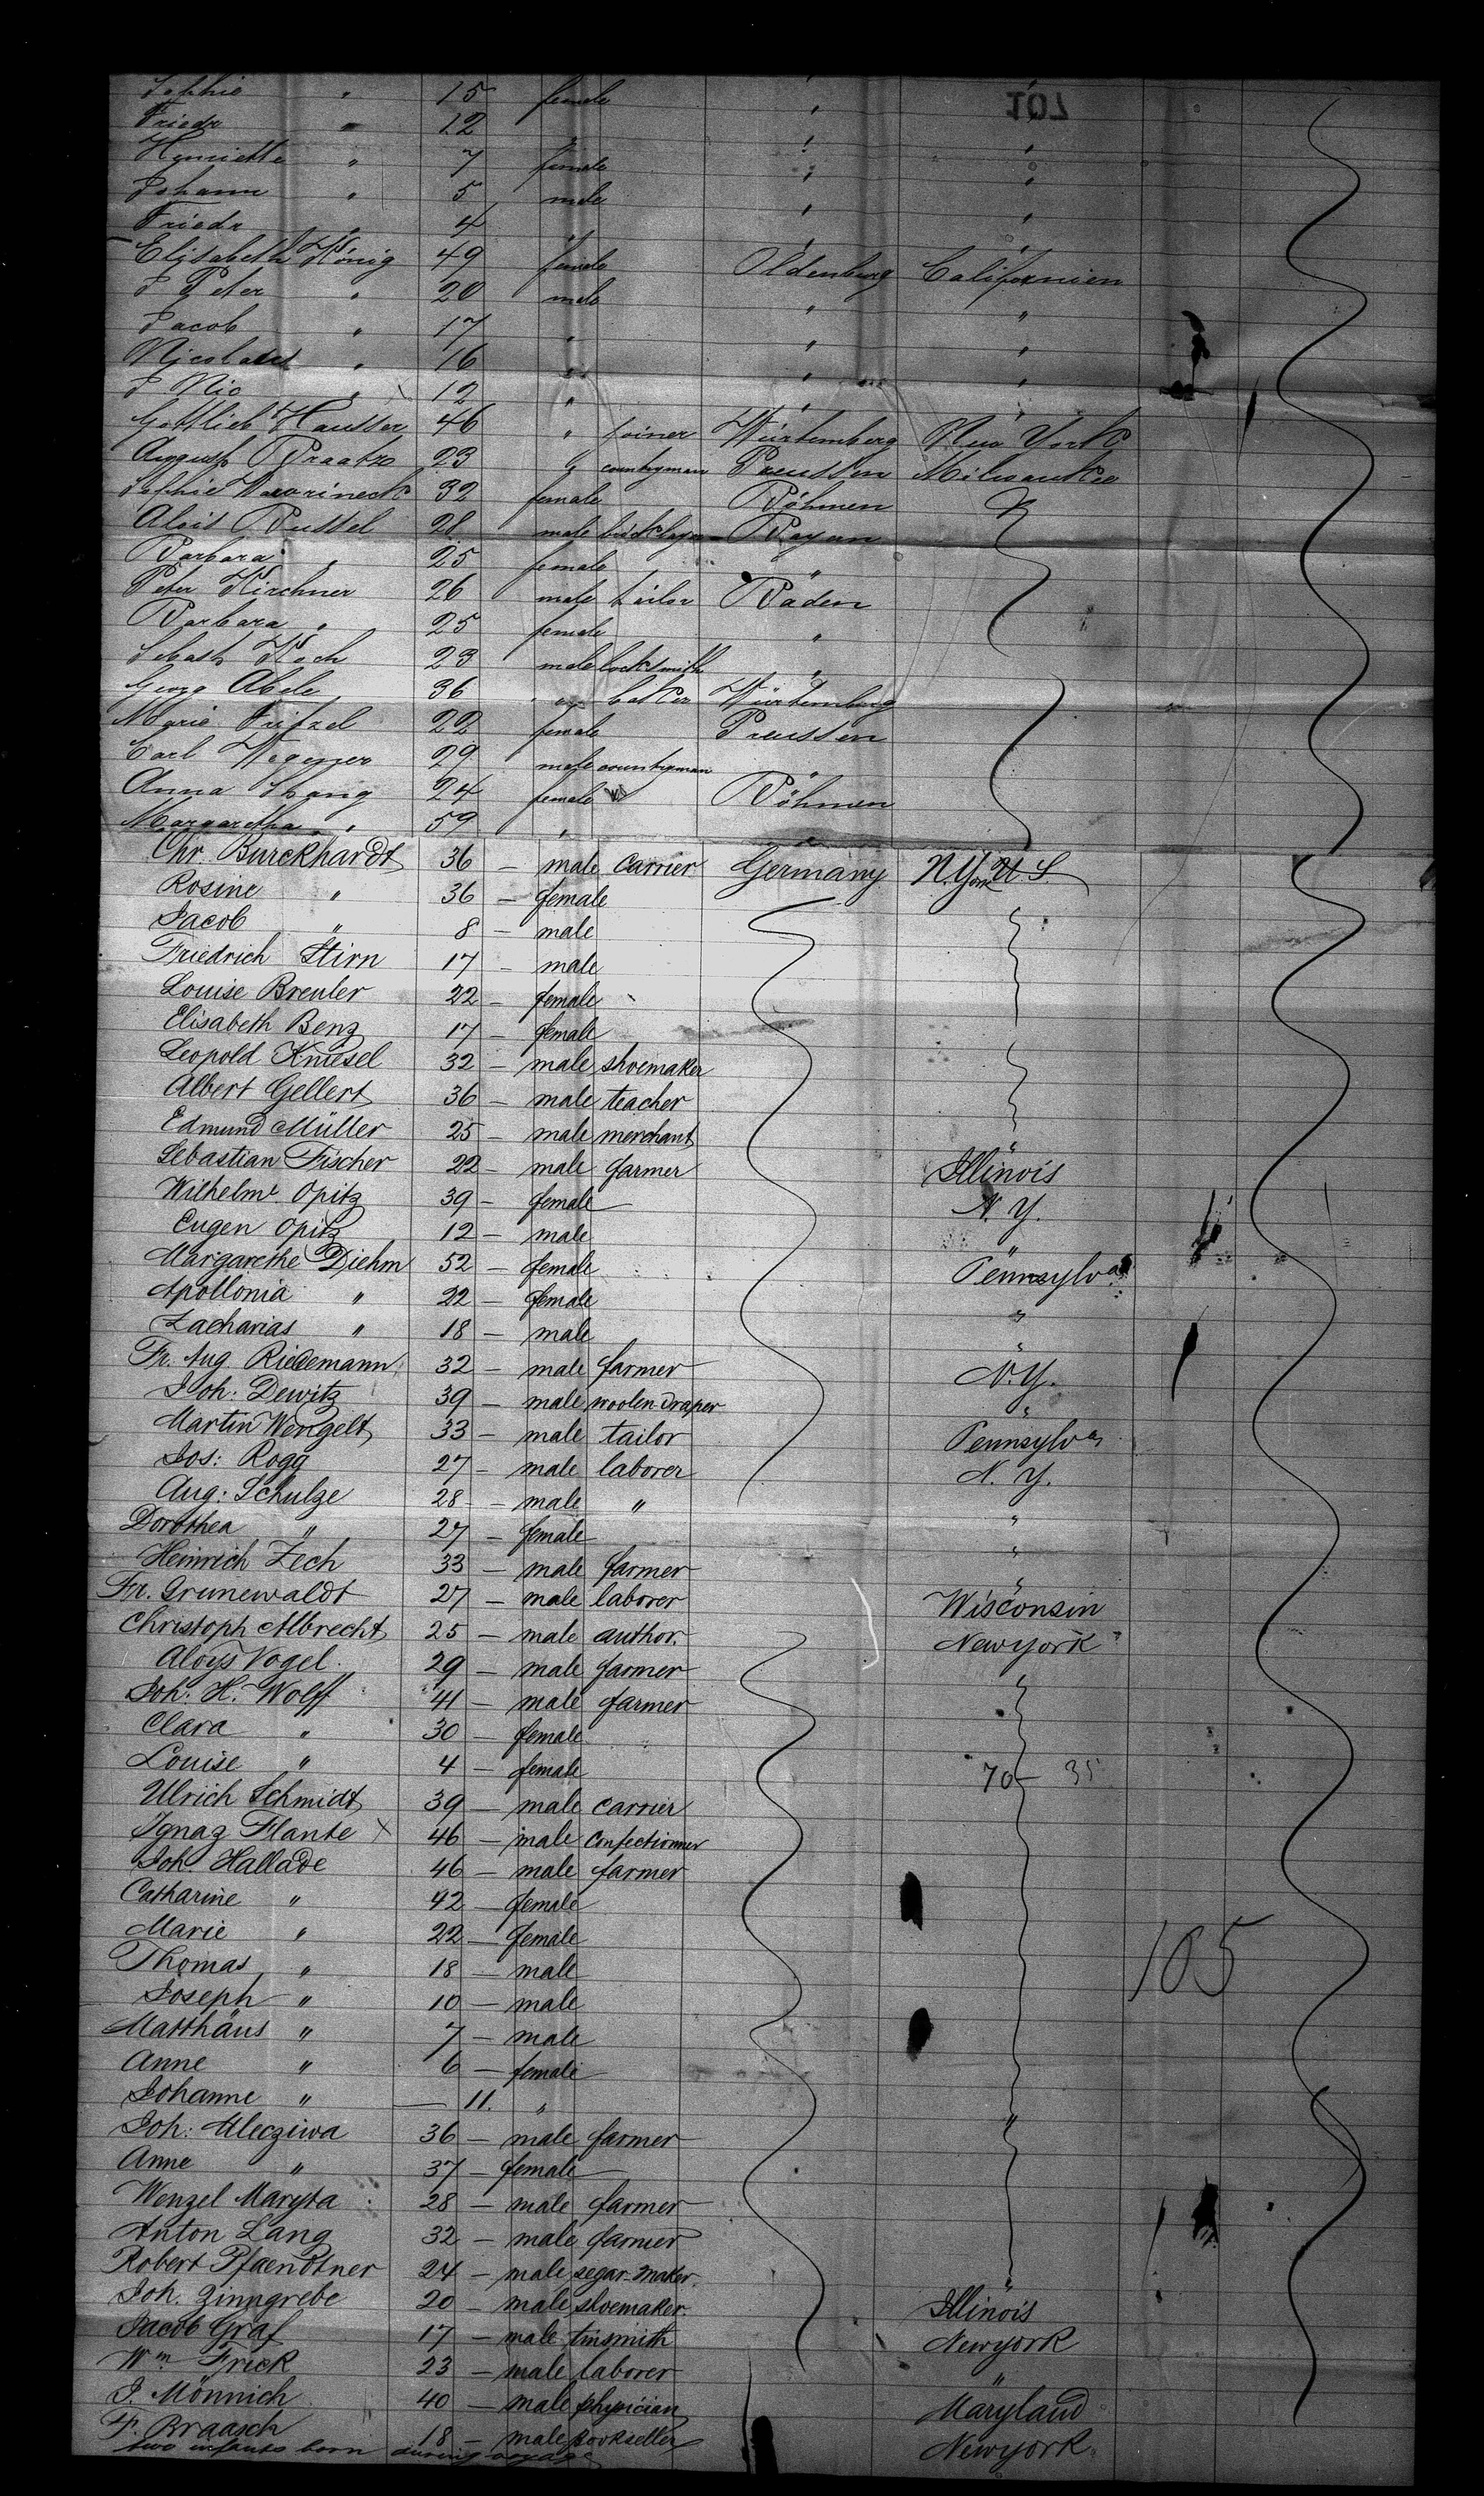 Sophie " 15 female "
Friedr " 12 " "
Henriette " 7 female " "
Johann " 5 male " "
Friedr " 4 " " "
Elisabeth König 49 female Oldenburg Californien
J Peter " 20 male " "
Jacob " 17 " " "
Nicolaus " 16 " " "
J Nic " 12 " " "
Gottlieb Hausser 46 " joiner Würtemberg New York
August Braatz 23 " countryman Preussen Milwaukee
Sophie 32 female Böhmen "
Alois Bussel 28 male bricklayer Bayern
Barbara " 25 female "
Peter Kirchner 26 male tailor Baden
Barbara " 25 female "
Sebast Koch 23 male locksmith "
Georg Abele 36 " baker Würtemberg
Marie Fritzel 22 female Preussen
Carl Wegener 29 male countryman "
Anna Lhang 24 female Böhmen
Margaretha " 59 " "
Chr. Burckhardt 36 — male carrier Germany N. York U S.
Rosine " 36 — female
Jacob " 8 — male
Friedrich Stirn 17 — male
Louise Breuler 22 — female
Elisabeth Benz 17 — female
Leopold Kniesel 32 — male shoemaker
Albert Gellert 36 — male teacher
Edmund Müller 25 — male merchant
Sebastian Fischer 22 — male farmer Illinois
Wilhelme Opitz 39 — female N. Y.
Eugen Opitz 12 — male "
Margarethe Diehm 52 — female Pennsylva
Apollonia " 22 — female "
Zacharias " 18 — male "
Fr. Aug. Riedemann 32 — male farmer N. Y.
Joh: Dewitz 39 — male woolen-draper "
Martin Wengelt 33 — male tailor Pennsylva
Jos: Rogg 27 — male laborer N. Y.
Aug: Schulze 28 — male " "
Dorothea " 27 — female "
Heinrich Zech 33 — male farmer "
Fr. Grunewaldt 27 — male laborer Wisconsin
Christoph Albrecht 25 — male author. Newyork
Aloys Vogel 29 — male farmer
Joh: H. Wolff 41 — male farmer
Clara " 30 — female
Louise " 4 — female 70 — 35
Ulrich Schmidt 39 — male carrier
Ignaz Flante × 46 — male Confectionner
Joh Hallade 46 — male farmer
Catharine " 42 — female
Marie " 22 — female
Thomas " 18 — male 105
Joseph " 10 — male
Matthäus " 7 — male
Anne " 6 — female
Johanne " — 11. "
Joh: Uleziwa 36 — male farmer
Anne " 37 — female
Wenzel Maryta 28 — male farmer
Anton Lang 32 — male farmer
Robert Pfaendtner 24 — male segar-maker.
Joh. Zinngrebe 20 — male shoemaker. Illinois
Jacob Graf 17 — male tinsmith Newyork
Wm. Frick 23 — male laborer "
J. Mönnich 40 — male physician Maryland
F. Braasch 18 — male bookseller Newyork
two infants born during voyage